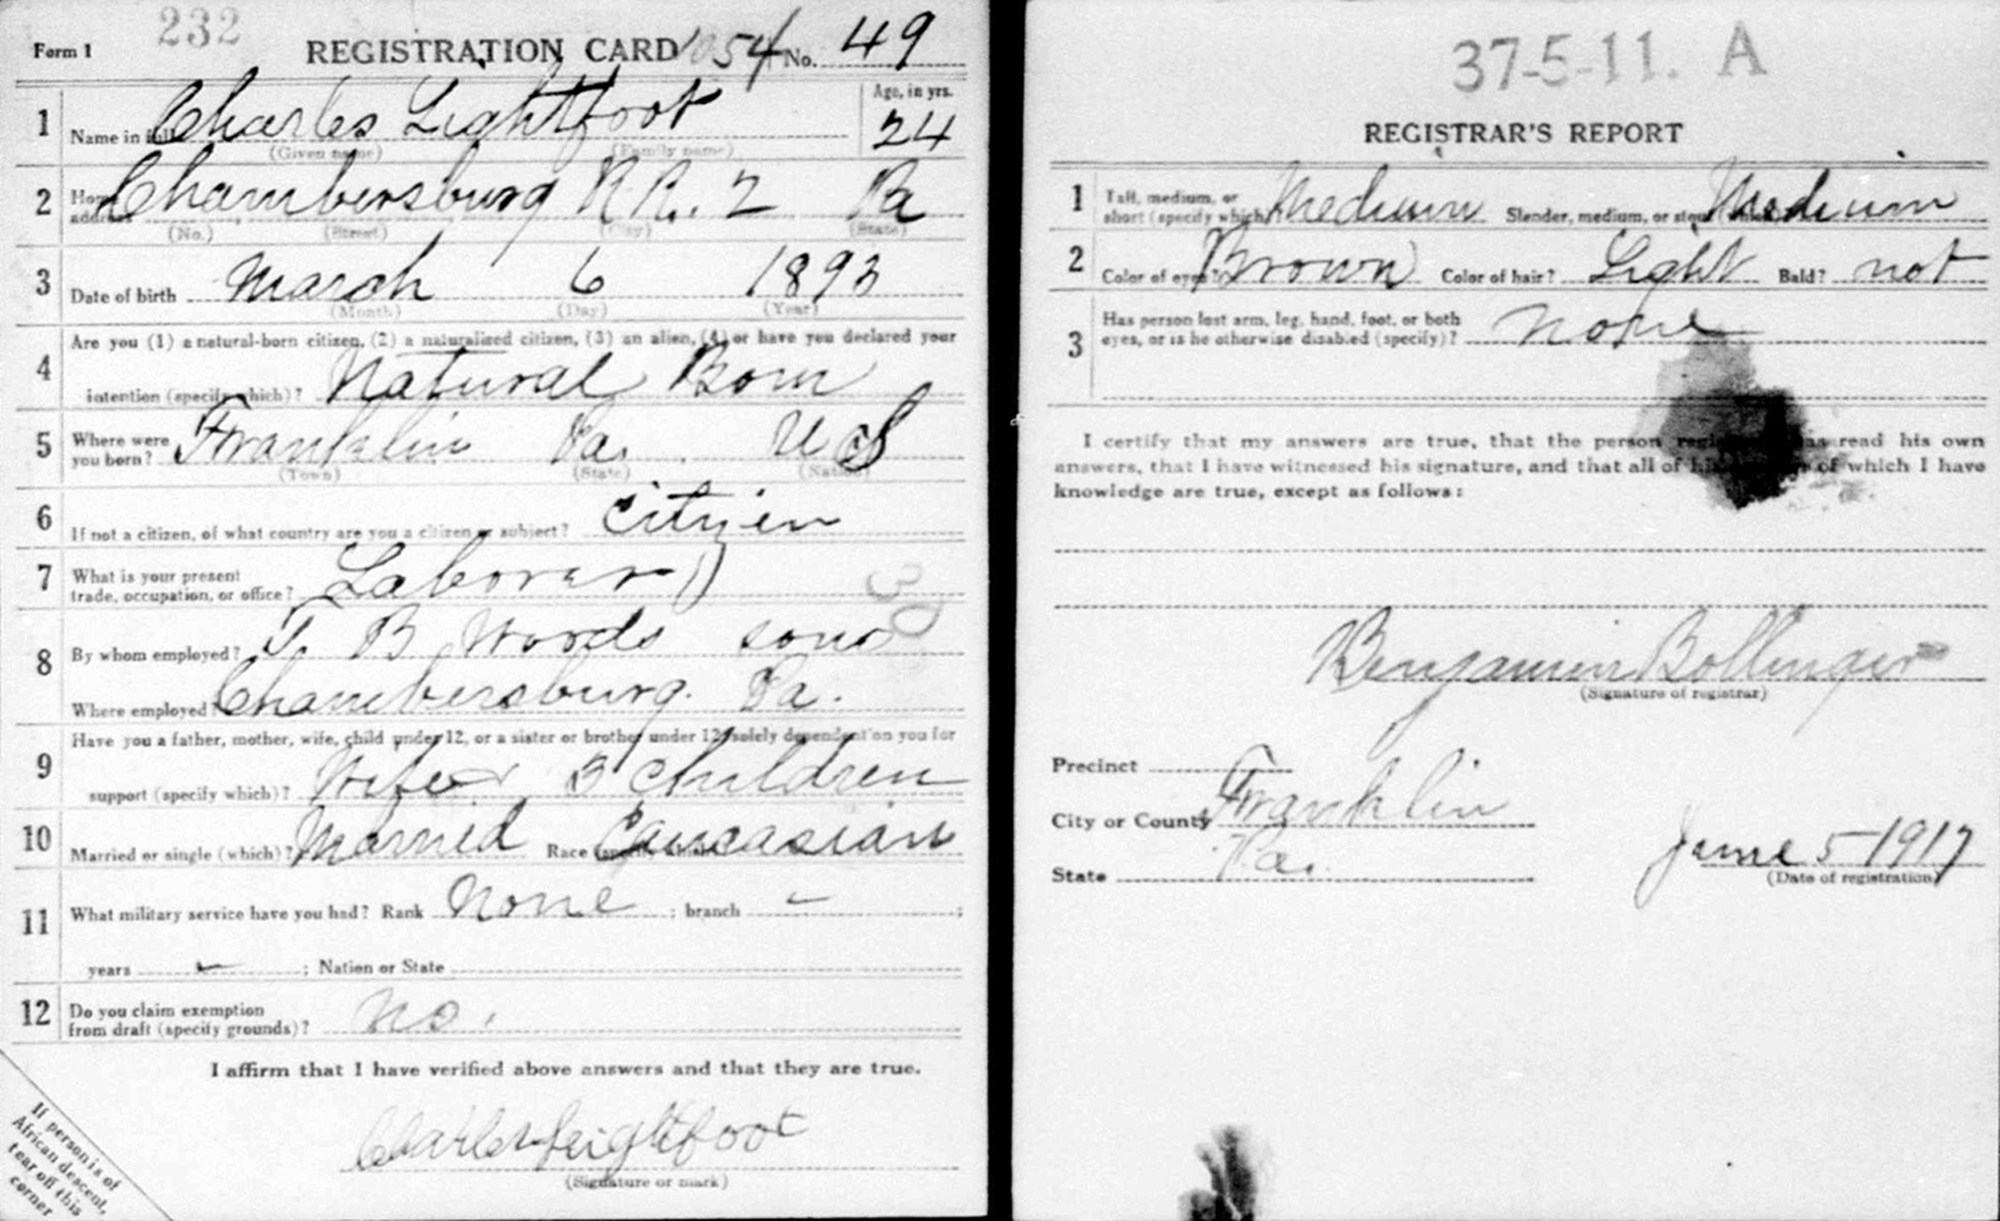 232
Form 1 REGISTRATION CARD 1054 No. 49
1 Name in full Charles Lightfoot Age, in yrs. 24
(Given name) (Family name)
2 Home address Chambersburg R.R. 2 Pa
(No.) (Street) (City) (State)
3 Date of birth March 6 1893
(Month) (Day) (Year)
4 Are you (1) a natural-born citizen, (2) a naturalized citizen, (3) an alien, (4) or have you declared your
intention (specify which)? Natural Born
5 Where were you born? Franklin Pa. U S
(Town) (State) (Nation)
6 If not a citizen, of what country are you a citizen or subject? Citizen
7 What is your present
trade, occupation, or office? Laborer
30
8 By whom employed? T B Woods sons
Where employed? Chambersburg. Pa.
9 Have you a father, mother, wife, child under 12, or a sister or brother under 12, solely dependent on you for
support (specify which)? Wife 3 children
10 Married or single (which)? Married Race (specify which)? Caucasian
11 What military service have you had? Rank None ; branch - ;
years - ; Nation or State
12 Do you claim exemption
from draft (specify grounds)? No.
I affirm that I have verified above answers and that they are true.
Charles Leightfoot
(Signature or mark)
If person is of
African descent,
tear off this
corner
37-5-11. A
REGISTRAR'S REPORT
1 Tall, medium, or
short (specify which)? Medium Slender, medium, or stout (which)? Medium
2 Color of eyes? Brown Color of hair? Light Bald? not
3 Has person lost arm, leg, hand, foot, or both
eyes, or is he otherwise disabled (specify)? None
I certify that my answers are true, that the person has read his own
answers, that I have witnessed his signature, and that all of his of which I have
knowledge are true, except as follows:
Benjamin Bollinger
(Signature of registrar)
Precinct
City or County Franklin
State Pa. June 5 1917
(Date of registration)